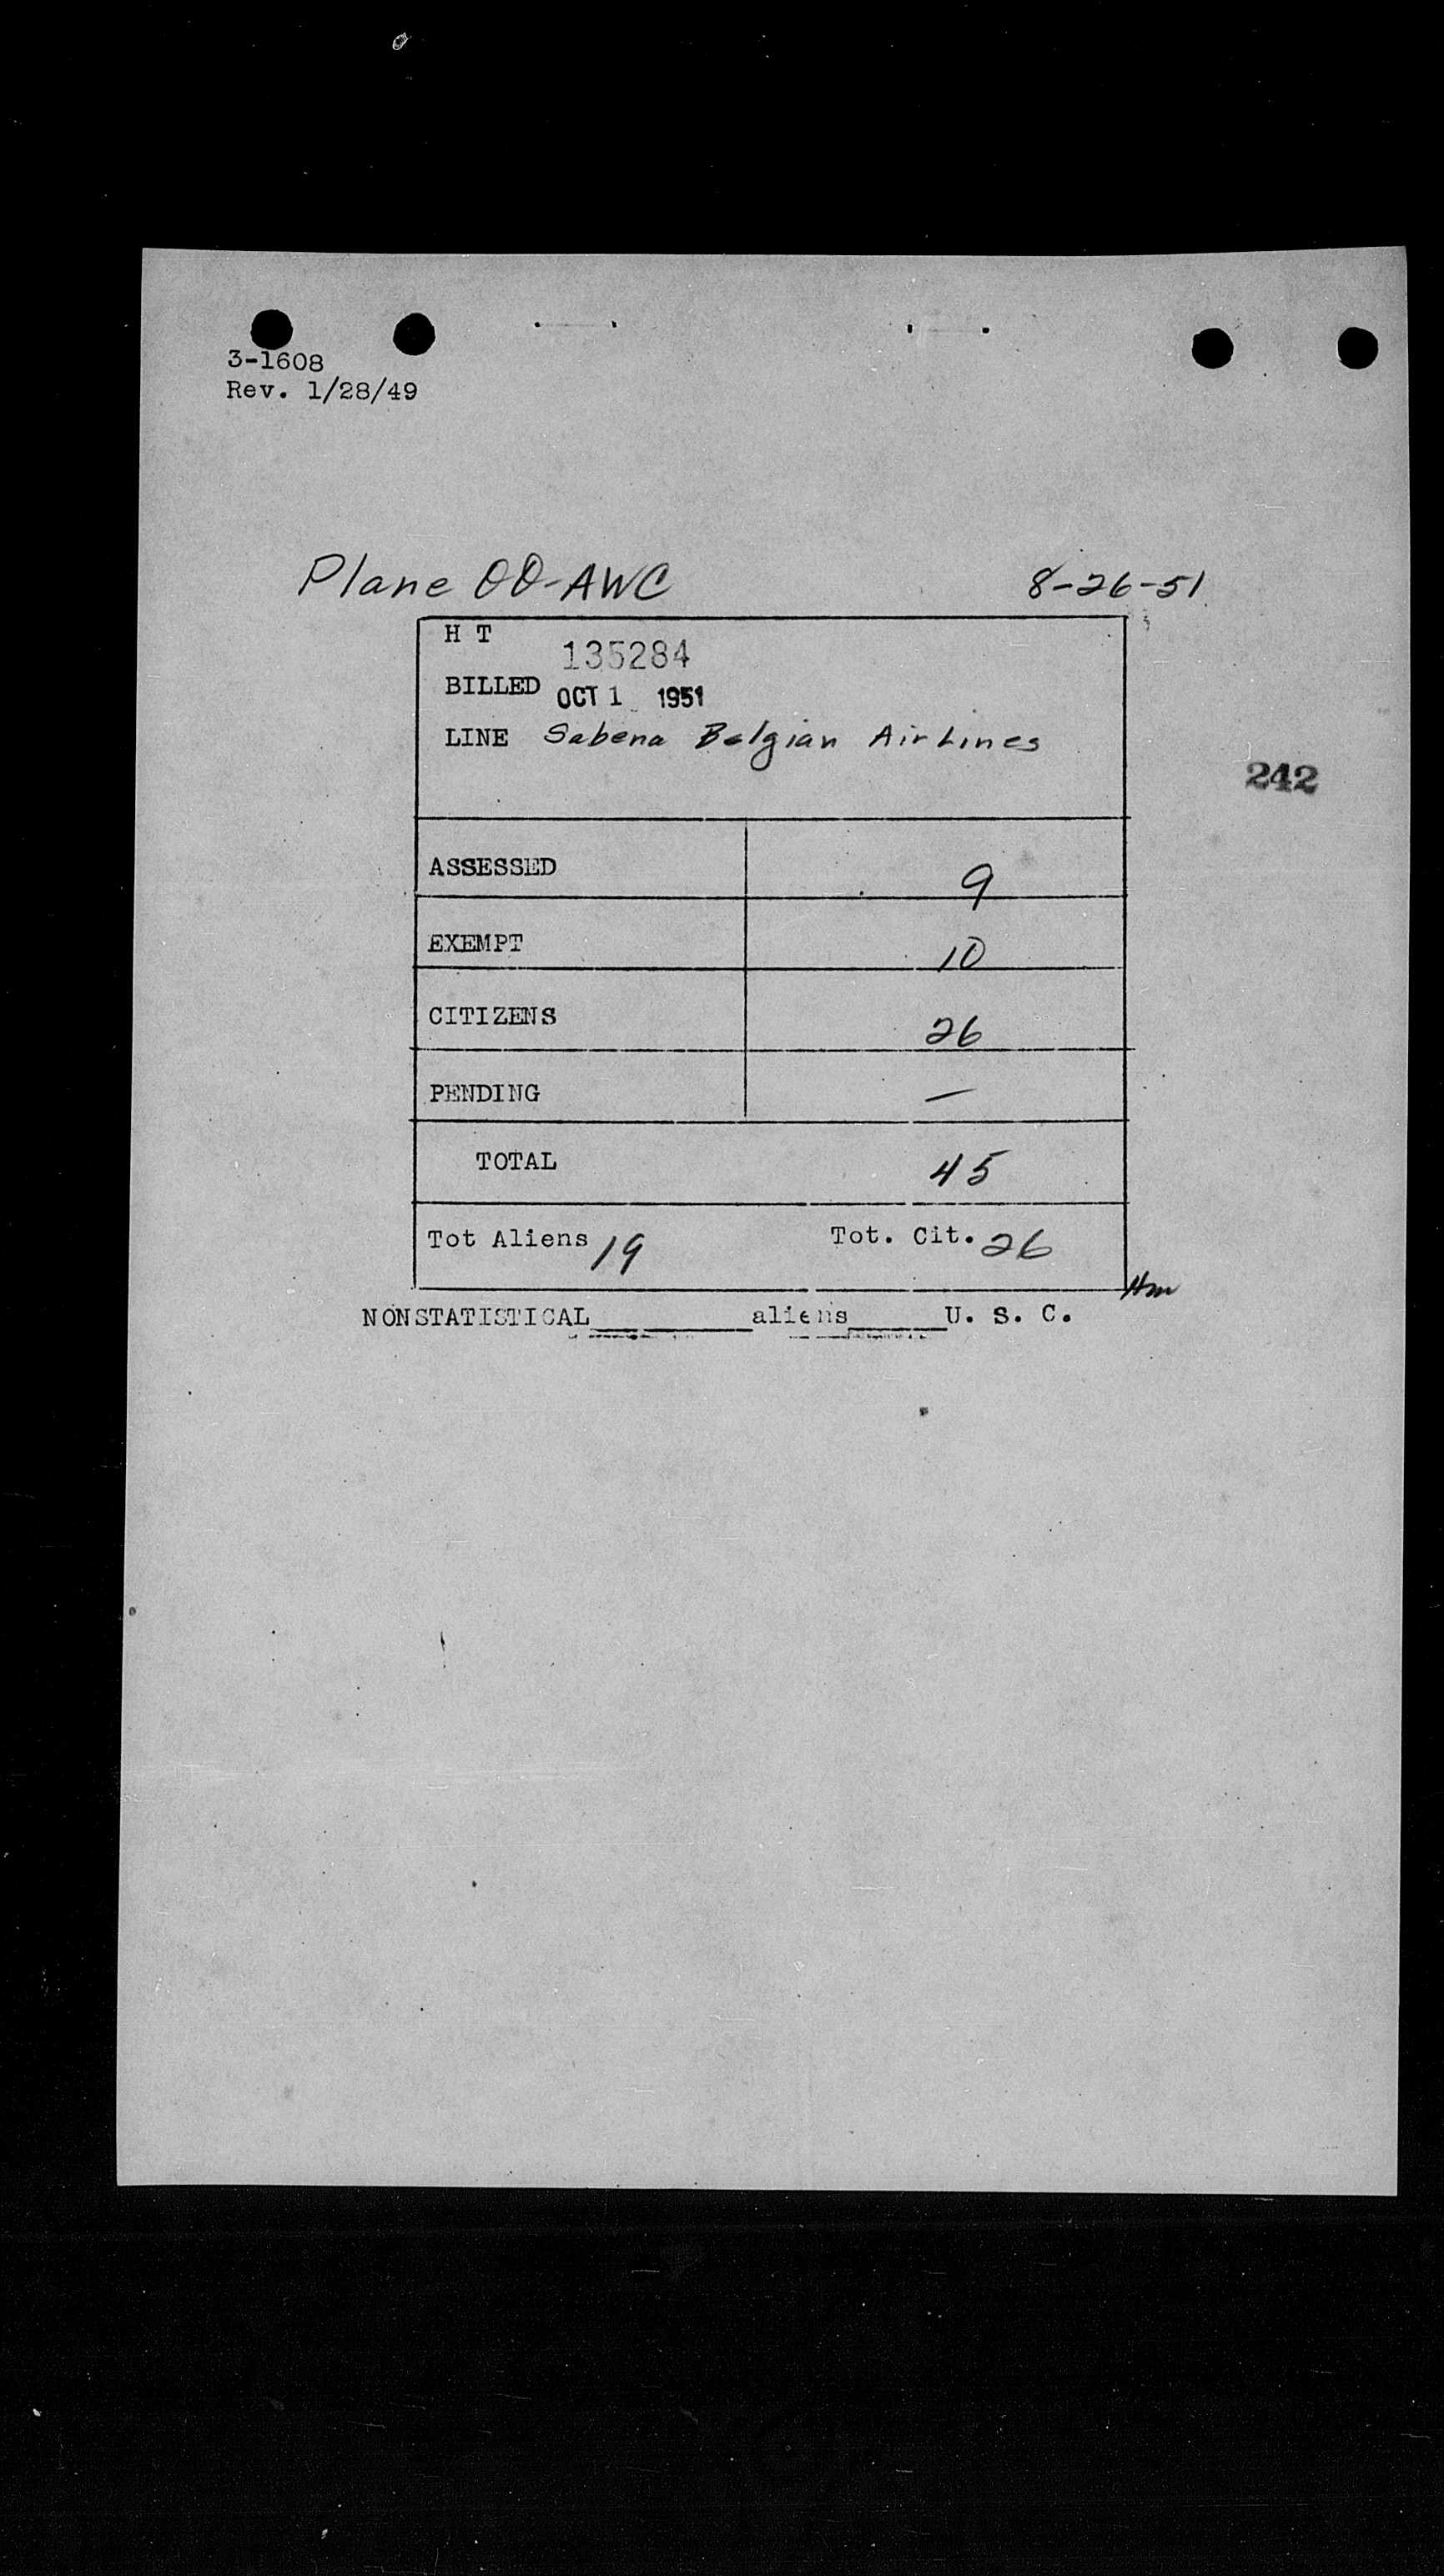 3-1608
Rev. 1/28/49
Plane OO-AWC 8-26-51
H T 135284
BILLED OCT 1 1951
LINE Sabena Belgian Air Lines
242
ASSESSED 9
EXEMPT 10
CITIZENS 26
PENDING —
TOTAL 45
Tot Aliens 19 Tot. Cit. 26
Hm
NONSTATISTICAL__________aliens______U. S. C.